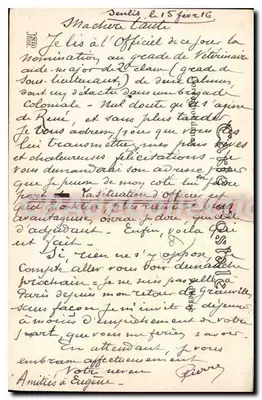 Senlis, le 15 févr 16
Ma chère Tante
Je lis à l'Officiel de ce jour la
nomination au grade de Vétérinaire
aide-major de 2e classe (grade de
sous-lieutenant) de deux
dont un détaché dans une brigade
Coloniale - Nul doute qu'il s'agisse
de René, et sans plus tarder
Je vous adresse, pour que vous
lui transmettiez mes plus vives
et chaleureuses félicitations - Je
vous demanderai son adresse pour
que je puisse de mon côté lui faire
La situation d'officier est
avantageuse, oserai-je dire que celle
d'adjudant - Enfin, voilà qui
est fait -
Si, rien ne s'y oppose, je
compte aller vous voir dimanche
prochain - Je ne suis pas allé à
Paris depuis mon retour de Granville
sans façon je m'invite à déjeuner
à moins d'empêchement de votre
part que vous me feriez savoir.
En attendant je vous
embrasse affectueusement
Votre neveu
Pierre
Amitiés à Eugène -